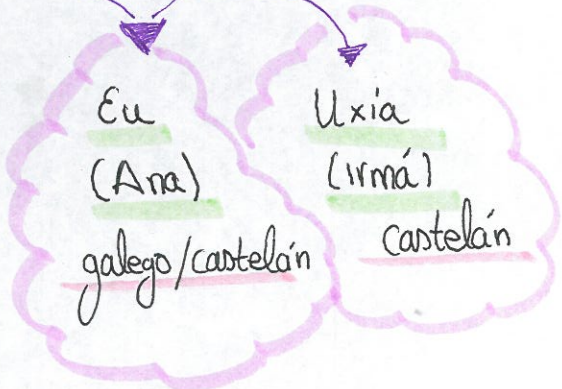 Eu
(Ana)
galego/castelán
Uxía
(irmá)
castelán